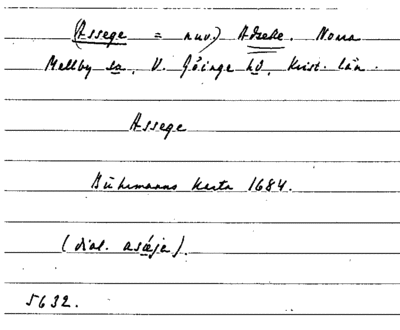 (Assege = nuv.) Adseke. Norra
Mellby sn, V. Göinge hd, Krist. län.
Assege
Buhrmanns karta 1684.
(dial. asæja).
5632.